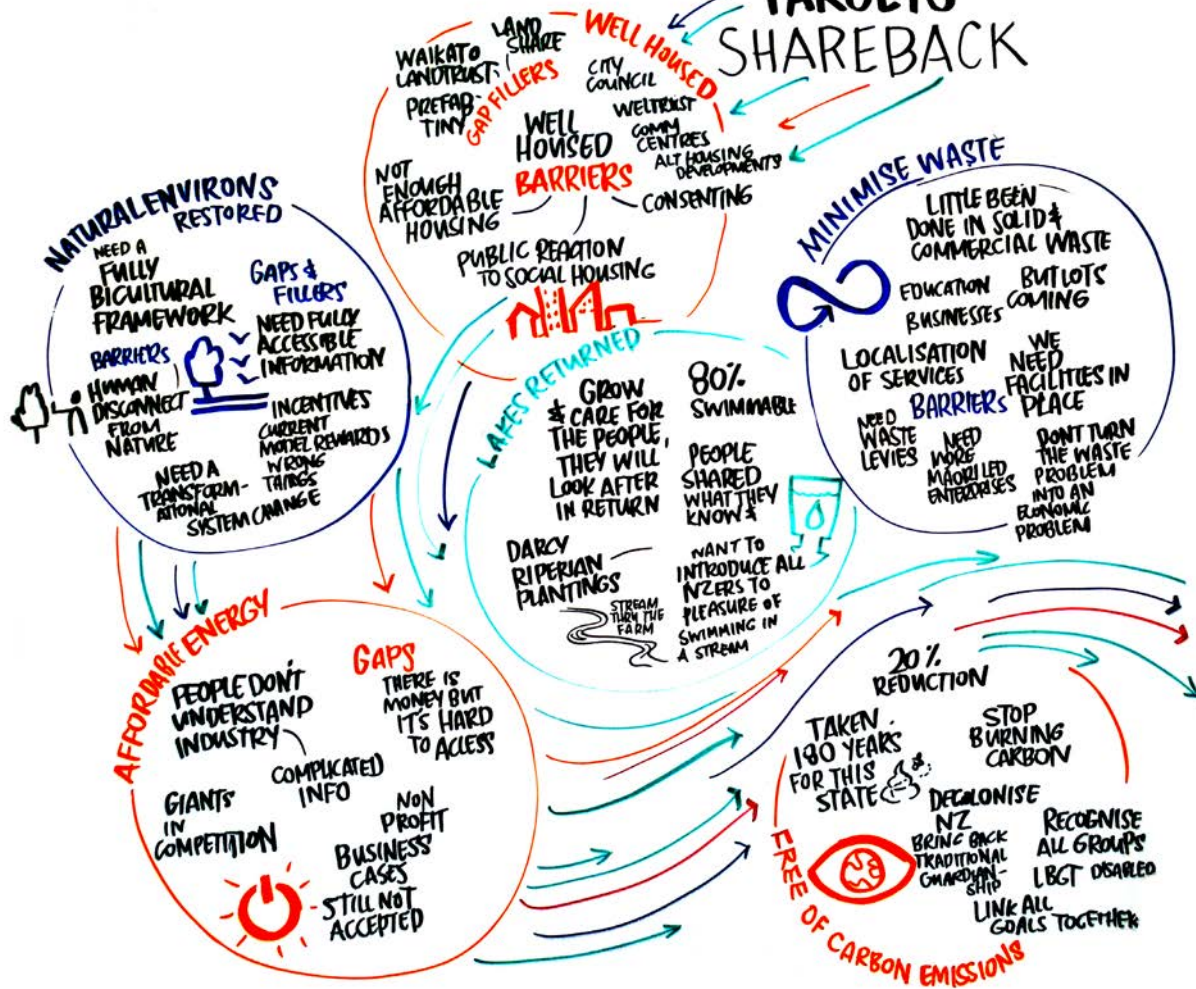 TARGETS
SHAREBACK
WELL HOUSED
LAND
SHARE
WAIKATO
LANDTRUST
PREFAB-
TINY
GAP FILLERS
CITY
COUNCIL
WELTRUST
COMM
CENTRES
ALT HOUSING
DEVELOPMENTS
WELL
HOUSED
BARRIERS
NOT
ENOUGH
AFFORDABLE
HOUSING
CONSENTING
PUBLIC REACTION
TO SOCIAL HOUSING
NATURAL ENVIRONS
RESTORED
NEED A
FULLY
BICULTURAL
FRAMEWORK
GAPS &
FILLERS
NEED FULLY
ACCESSIBLE
INFORMATION
BARRIERS
HUMAN
DISCONNECT
FROM
NATURE
INCENTIVES
CURRENT
MODEL REWARDS
WRONG
THINGS
NEED A
TRANSFORM-
ATIONAL
SYSTEM CHANGE
MINIMISE WASTE
LITTLE BEEN
DONE IN SOLID &
COMMERCIAL WASTE
BUT LOTS
COMING
EDUCATION
BUSINESSES
LOCALISATION
OF SERVICES
WE
NEED
FACILITIES IN
PLACE
BARRIERS
NEED
WASTE
LEVIES
NEED
MORE
MAORI LED
ENTERPRISES
DONT TURN
THE WASTE
PROBLEM
INTO AN
ECONOMIC
PROBLEM
LAKES RETURNED
GROW
& CARE FOR
THE PEOPLE,
THEY WILL
LOOK AFTER
IN RETURN
80%
SWIMMABLE
PEOPLE
SHARED
WHAT THEY
KNOW &
WANT TO
INTRODUCE ALL
NZERS TO
PLEASURE OF
SWIMMING IN
A STREAM
DARCY
RIPERIAN
PLANTINGS
STREAM
THRU THE
FARM
AFFORDABLE ENERGY
PEOPLE DON'T
UNDERSTAND
INDUSTRY
COMPLICATED
INFO
GAPS
THERE IS
MONEY BUT
IT'S HARD
TO ACCESS
GIANTS
IN
COMPETITION
NON
PROFIT
BUSINESS
CASES
STILL NOT
ACCEPTED
20%
REDUCTION
TAKEN
180 YEARS
FOR THIS
STATE
STOP
BURNING
CARBON
DECOLONISE
NZ
BRING BACK
TRADITIONAL
GUARDIAN-
SHIP
RECOGNISE
ALL GROUPS
LBGT DISABLED
LINK ALL
GOALS TOGETHER
FREE OF CARBON EMISSIONS